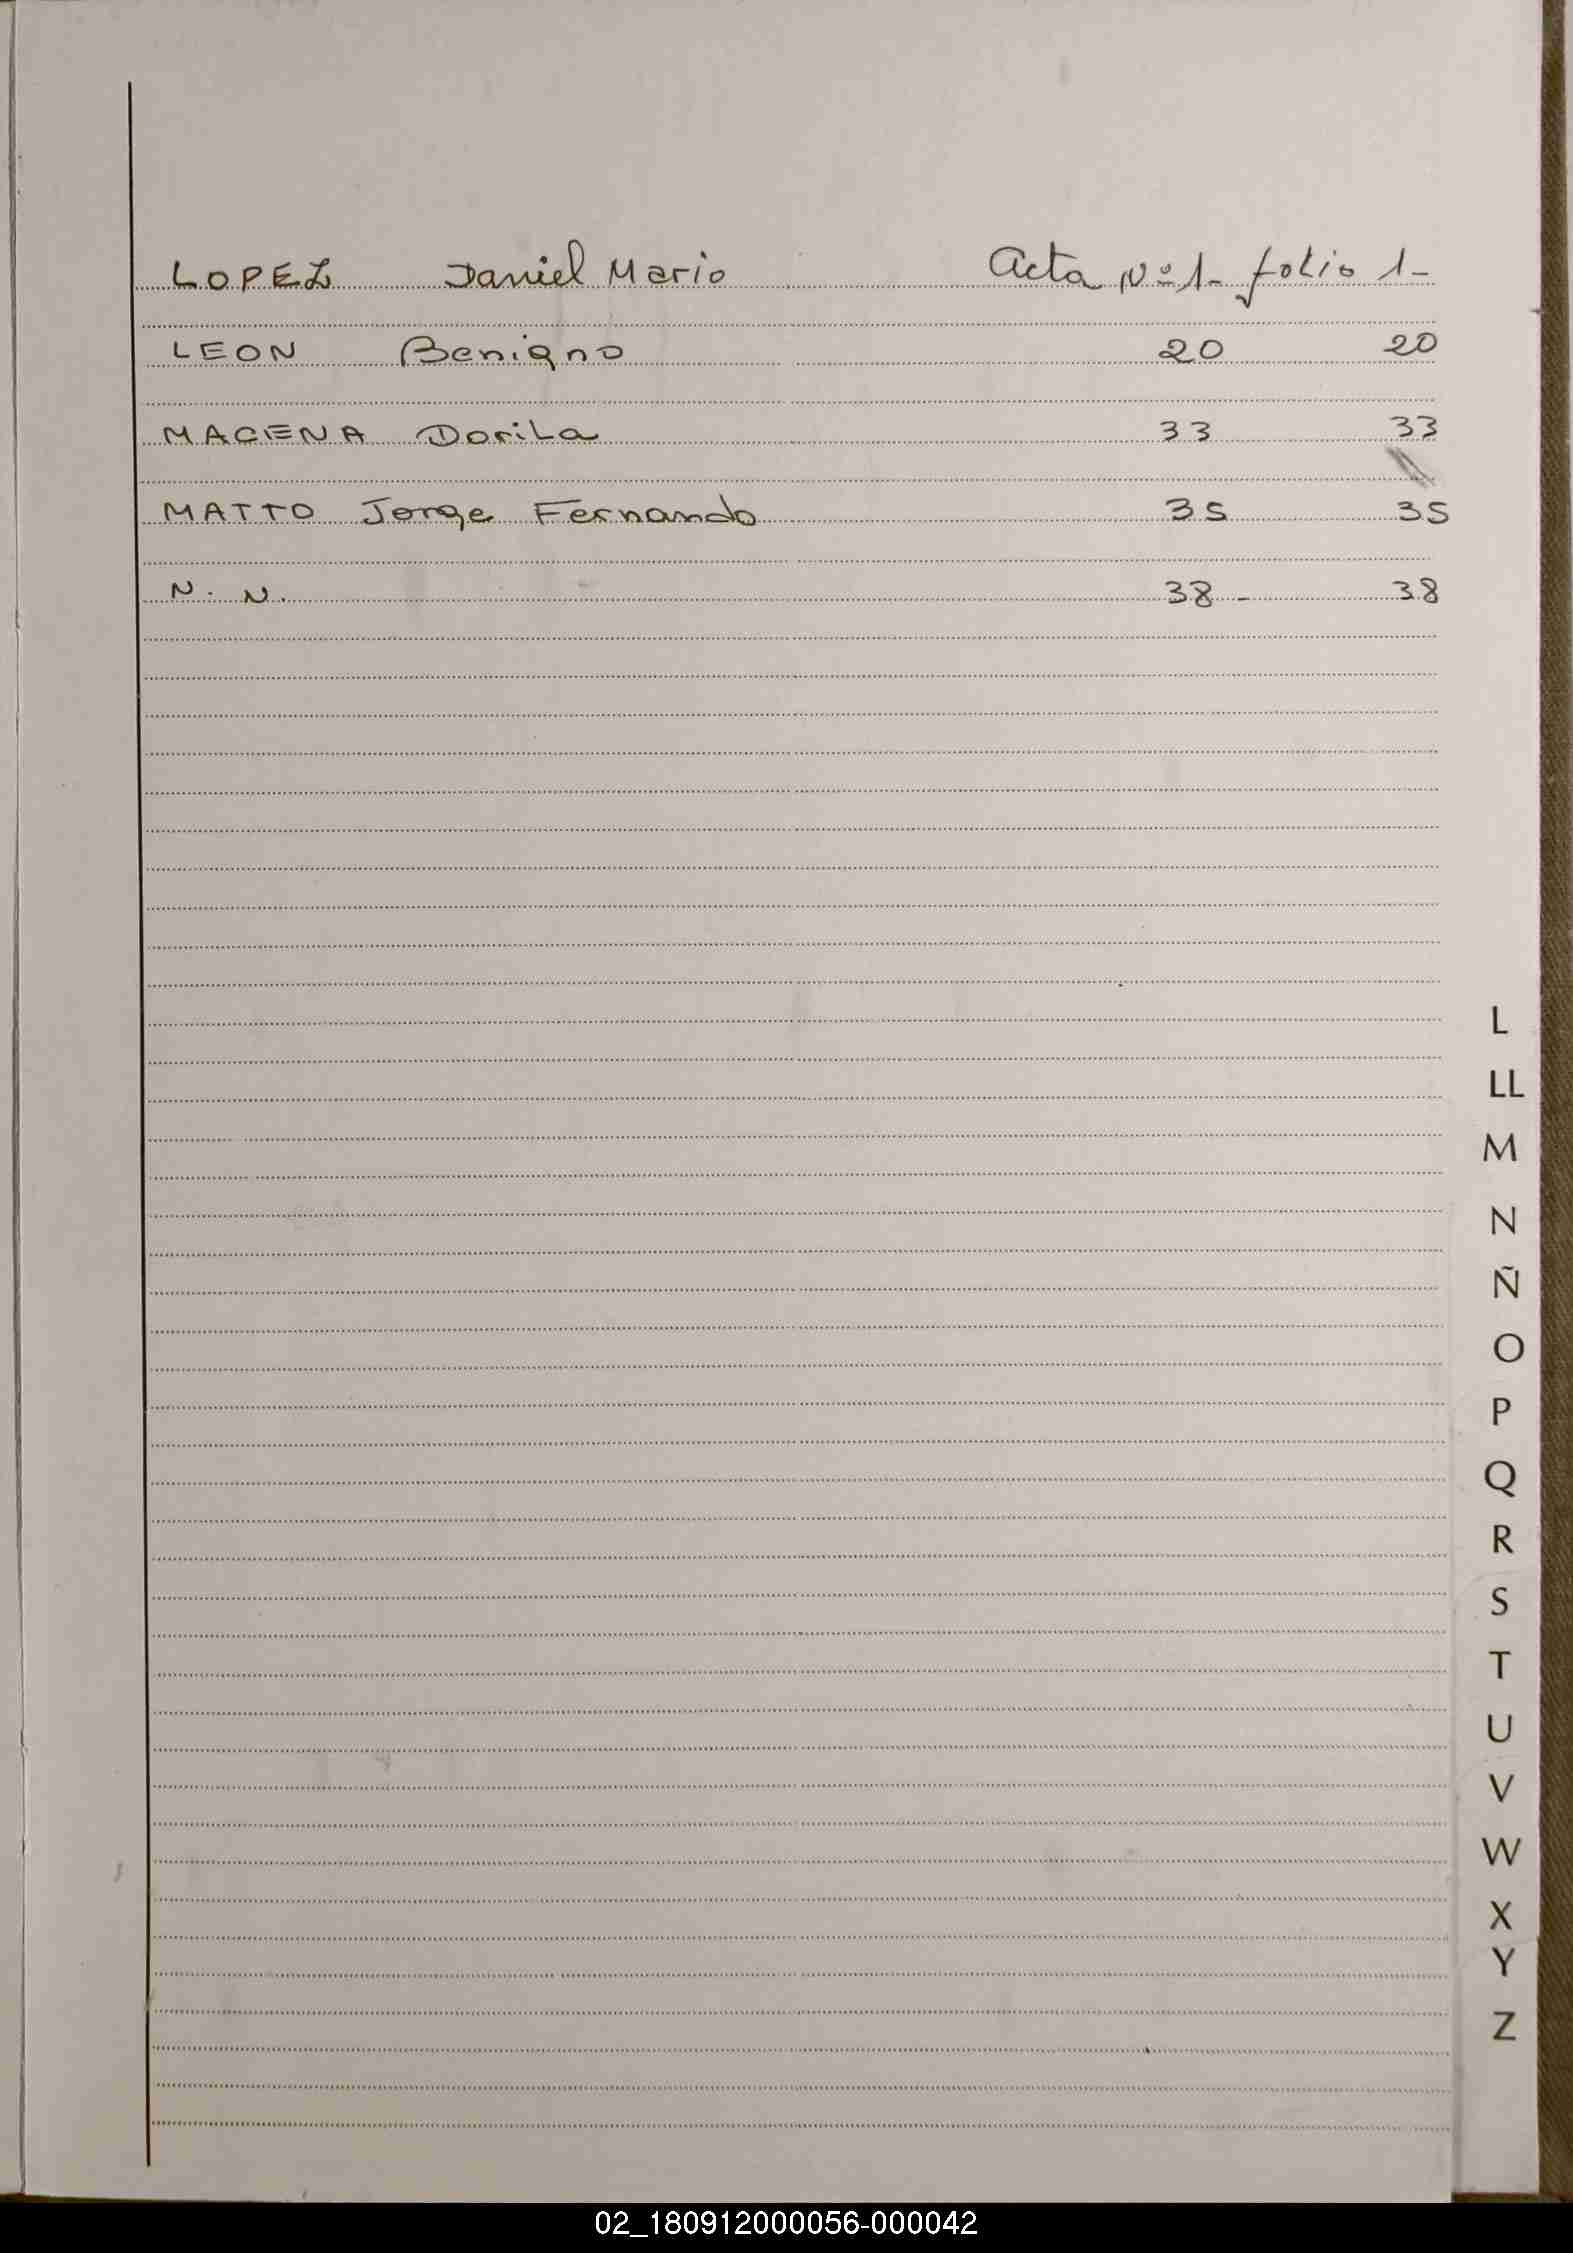 LOPEZ Daniel Mario Acta Nº 1- folio 1-
LEON Benigno 20 20
MACENA Dorila 33 33
MATTO Jorge Fernando 35 35
N. N. 38 - 38
L
LL
M
N
Ñ
O
P
Q
R
S
T
U
V
W
X
Y
Z
02_180912000056-000042